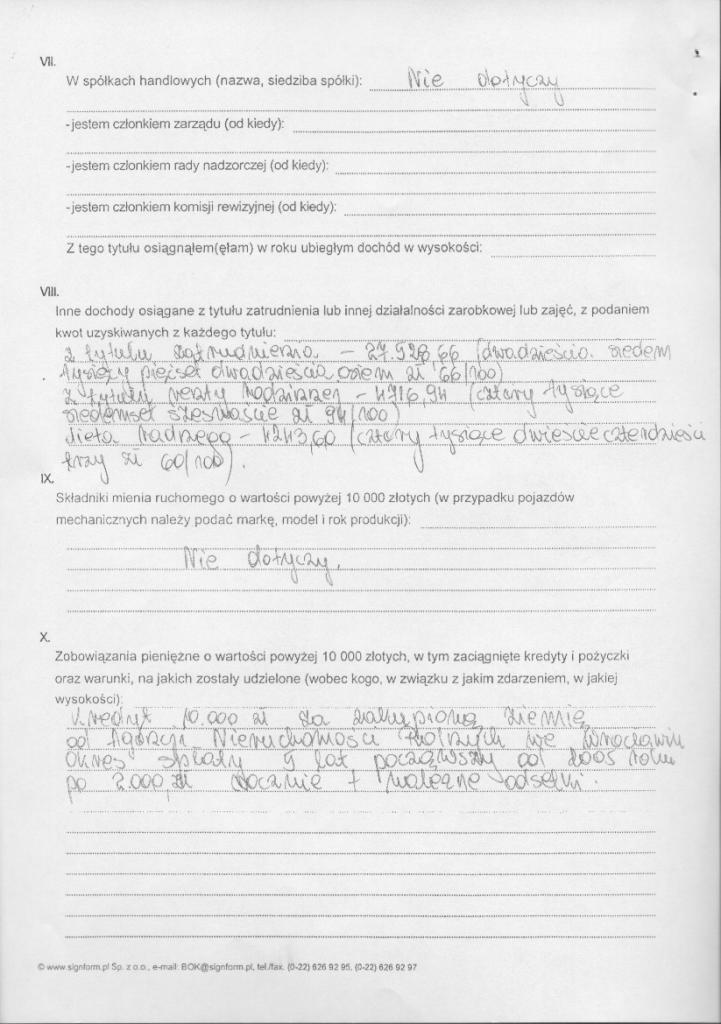 VII.
W spółkach handlowych (nazwa, siedziba spółki): Nie dotyczy
-jestem członkiem zarządu (od kiedy):
-jestem członkiem rady nadzorczej (od kiedy):
-jestem członkiem komisji rewizyjnej (od kiedy):
Z tego tytułu osiągnąłem(ęłam) w roku ubiegłym dochód w wysokości:
VIII.
Inne dochody osiągane z tytułu zatrudnienia lub innej działalności zarobkowej lub zajęć, z podaniem
kwot uzyskiwanych z każdego tytułu:
z tytułu zatrudnienia - 27.528,66 (dwadzieścia siedem
tysięcy pięćset dwadzieścia osiem zł 66/100)
z tytułu renty rodzinnej - 4716,94 (cztery tysiące
siedemset szesnaście zł 94/100)
dieta radnego - 4243,60 (cztery tysiące dwieście czterdzieści
trzy zł 60/100).
IX.
Składniki mienia ruchomego o wartości powyżej 10 000 złotych (w przypadku pojazdów
mechanicznych należy podać markę, model i rok produkcji):
Nie dotyczy.
X.
Zobowiązania pieniężne o wartości powyżej 10 000 złotych, w tym zaciągnięte kredyty i pożyczki
oraz warunki, na jakich zostały udzielone (wobec kogo, w związku z jakim zdarzeniem, w jakiej
wysokości):
Kredyt 10.000 zł za zakupioną ziemię
od Agencji Nieruchomości Rolnych we Wrocławiu
Okres spłaty 5 lat począwszy od 2005 roku
po 2.000 zł rocznie + należne odsetki.
© www.signform.pl Sp. z o.o., e-mail: BOK@signform.pl, tel./fax. (0-22) 626 92 95, (0-22) 626 92 97